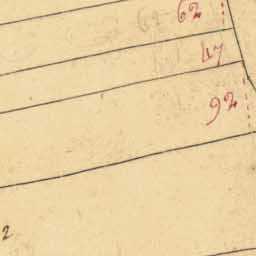 62
47
92
2